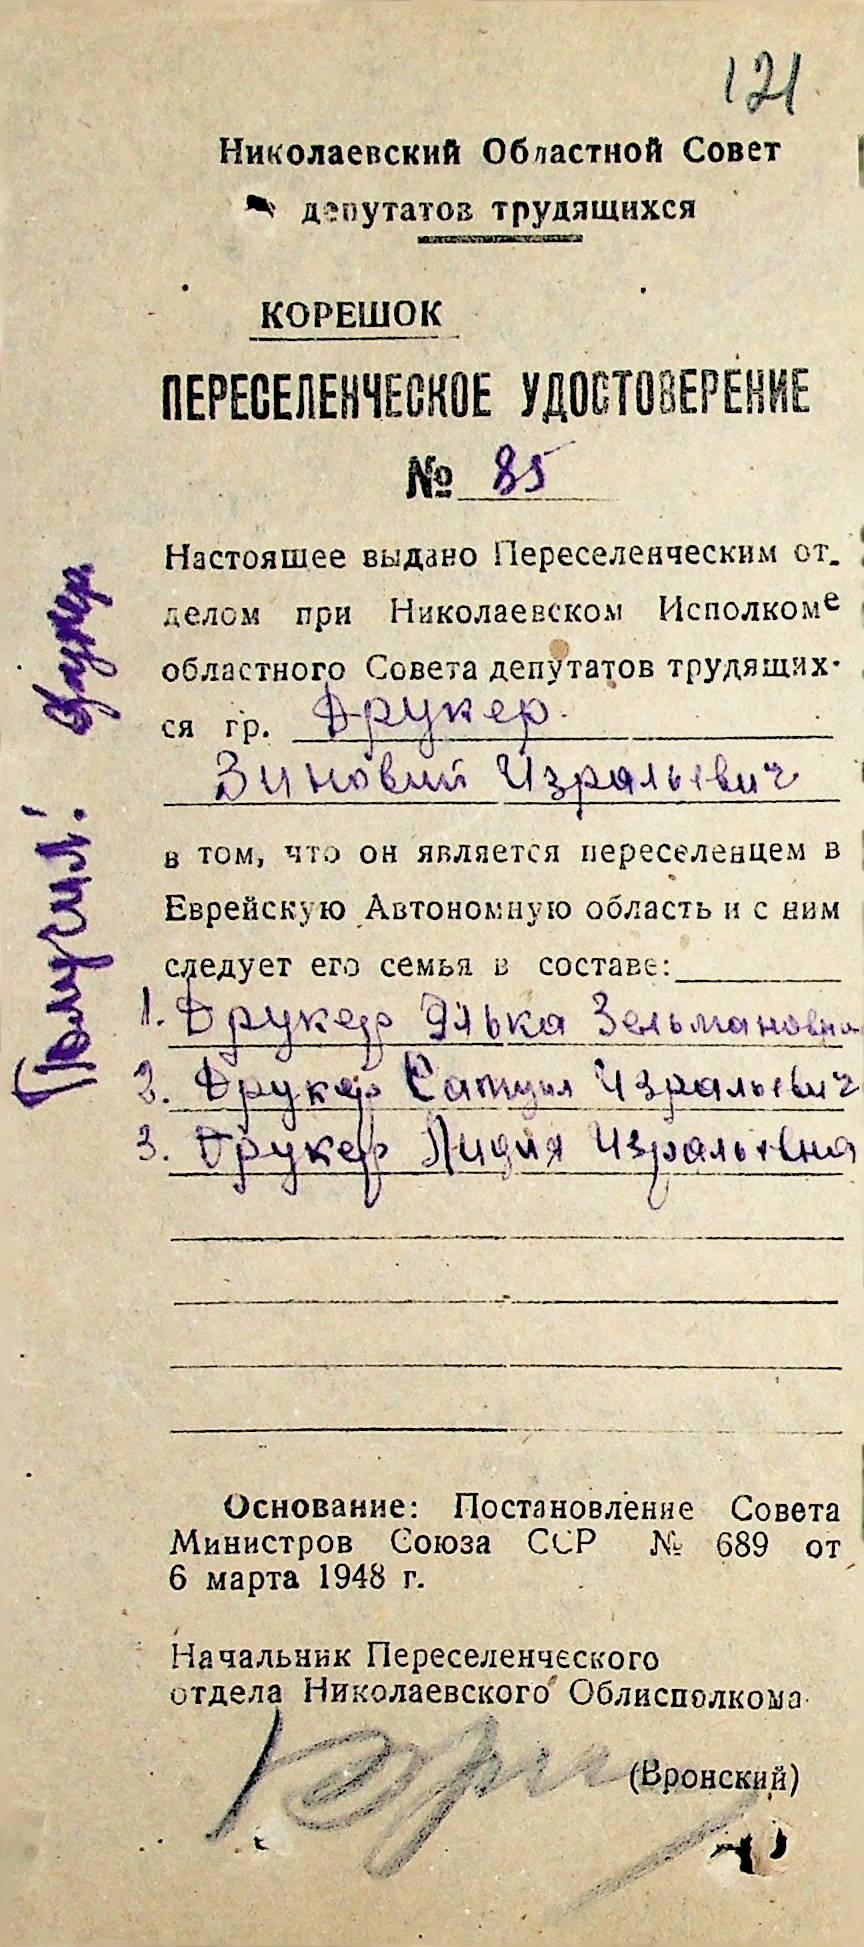 121
Николаевский Областной Совет
депутатов трудящихся
КОРЕШОК
ПЕРЕСЕЛЕНЧЕСКОЕ УДОСТОВЕРЕНИЕ
№ 85
Настоящее выдано Переселенческим от-
делом при Николаевском Исполкоме
областного Совета депутатов трудящих-
ся гр. Друкер
Зиновий Изральевич
в том, что он является переселенцем в
Еврейскую Автономную область и с ним
следует его семья в составе:
1. Друкер Элька Зельмановна
2. Друкер Самуил Изральевич
3. Друкер Лидия Изральевна
Получил: Друкер
Основание: Постановление Совета
Министров Союза ССР № 689 от
6 марта 1948 г.
Начальник Переселенческого
отдела Николаевского Облисполкома
(Вронский)